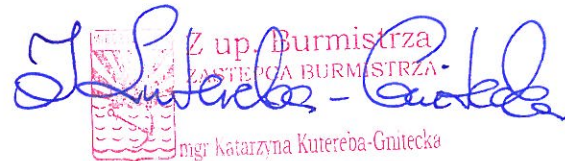 Z up. Burmistrza
ZASTĘPCA BURMISTRZA
mgr Katarzyna Kutereba-Gnitecka
KKutereba-Gnitecka